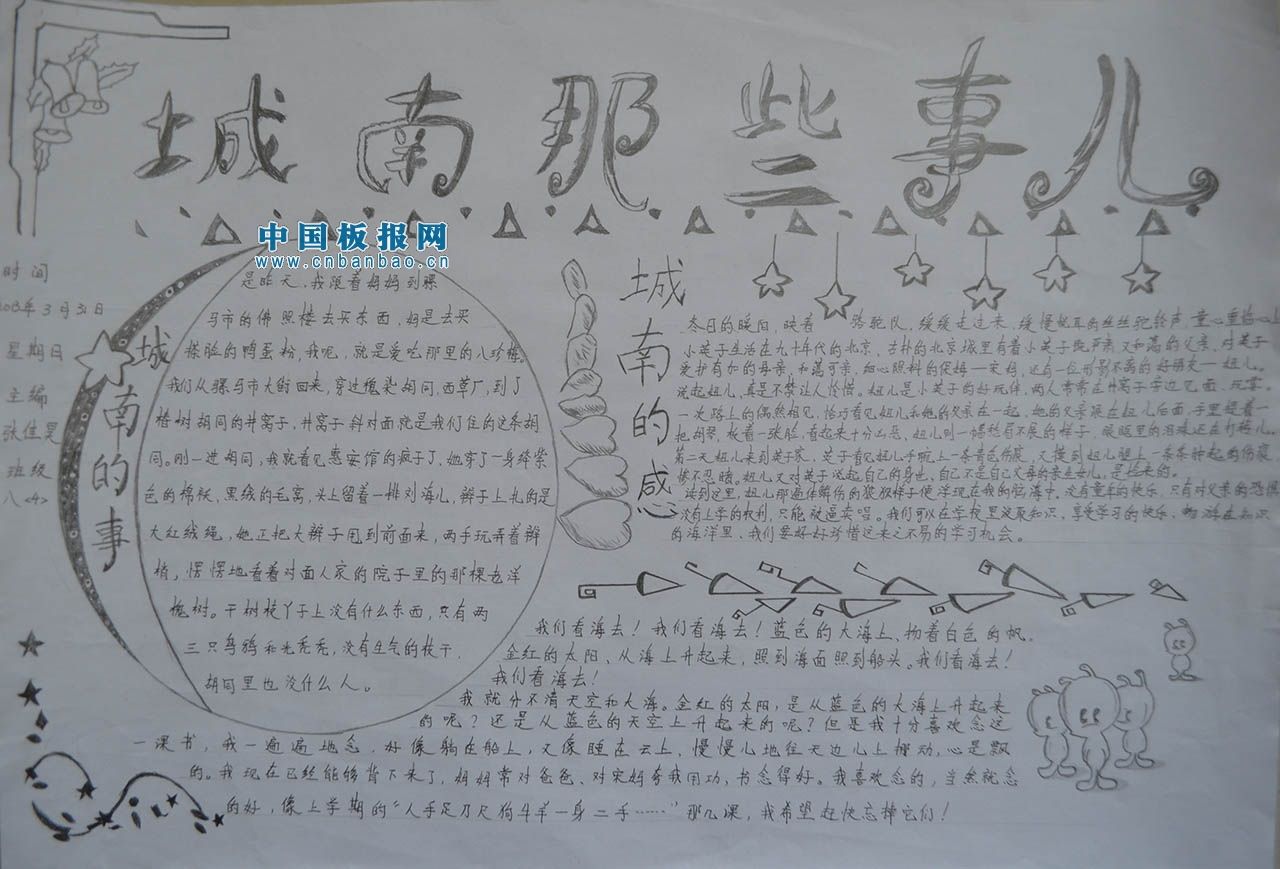 城南那些事儿
中国板报网
www.cnbanbao.cn
时间
2013年3月31日
星期日
主编
张佳昊
班级
八<4>
城南的事
是昨天,我跟着妈妈到骡
马市的佛照楼去买东西,妈是去买
擦脸的鸭蛋粉,我呢,就是爱吃那里的八珍梅。
我们从骡马市大街回来,穿过魏染胡同,西草厂,到了
椿树胡同的井窝子,井窝子斜对面就是我们住的这条胡
同。刚一进胡同,我就看见惠安馆的疯子了,她穿了一身绛紫
色的棉袄,黑绒的毛窝,头上留着一排刘海儿,辫子上扎的是
大红绒绳,她正把大辫子甩到前面来,两手玩弄着辫
梢,愣愣地看着对面人家的院子里的那棵老洋
槐树。干树枝丫子上没有什么东西,只有两
三只乌鸦和光秃秃,没有生气的枝干.
胡同里也没什么人。
城南的感
冬日的暖阳,映着 骆驼队,缓缓走过来,缓慢悦耳的丝丝驼铃声,童心重临心上
小英子生活在九十年代的北京、古朴的北京城里有着小英子既严肃又和蔼的父亲、对英子
爱护有加的母亲,和蔼可亲,细心照料的保姆—宋妈,还有一位形影不离的好朋友—妞儿。
说起妞儿,真是不禁让人怜惜。妞儿是小英子的好玩伴,两人常常在井窝子旁边见面、玩耍。
一次路上的偶然相见,恰巧看见妞儿和她的父亲在一起,她的父亲跟在妞儿后面,手里提着一
把胡琴,板着一张脸,看起来十分凶恶、妞儿则一幅愁眉不展的样子,眼眶里的泪珠还在打转儿。
第二天妞儿来到英子家,英子看见妞儿手腕上一条青色伤痕,又摸到妞儿腿上一条条肿起的伤痕
惨不忍睹。妞儿又对英子说起自己的身世,自己不是自己父母的亲生女儿,是捡来的。
读到这里,妞儿那遍体鳞伤的狼狈样子便浮现在我的脑海中,没有童年的快乐,只有对父亲的恐惧
没有上学的权利,只能被逼卖唱。我们可以在学校里汲取知识、享受学习的快乐、畅游在知识
的海洋里、我们要好好珍惜这来之不易的学习机会。
我们看海去!我们看海去!蓝色的大海上,扬着白色的帆.
金红的太阳、从海上升起来,照到海面照到船头。我们看海去!
我们看海去!
我就分不清天空和大海。金红的太阳,是从蓝色的大海上升起来
的呢?还是从蓝色的天空上升起来的呢?但是我十分喜欢念这
一课书,我一遍遍地念,好像躺在船上,又像睡在云上、慢慢儿地往天边儿上挪动,心是飘
的。我现在已经能够背下来了,妈妈常对爸爸、对宋妈夸我用功,书念得好。我喜欢念的,当然就念
的好,像上学期的“人手足刀尺狗牛羊一身二手……”那几课,我希望赶快忘掉它们!